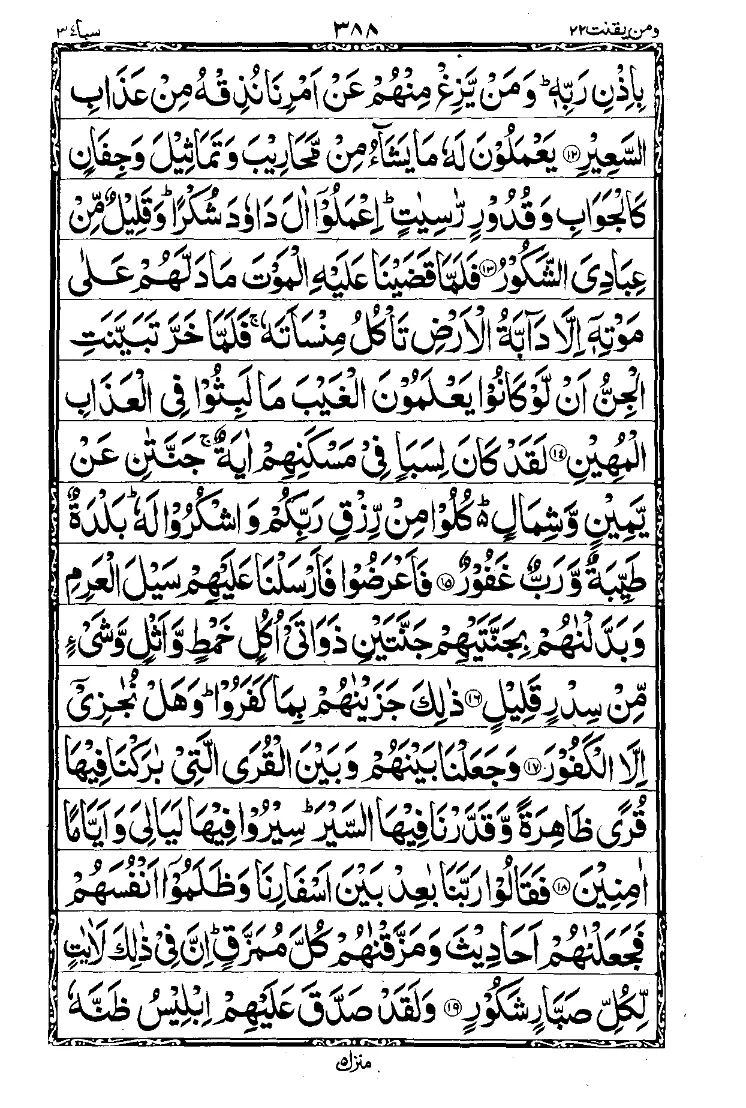 ومن يقنت ٢٢ ٣٨٨ سبا ٣٤
بِاِذْنِ رَبِّهٖ ؕ وَمَنْ يَّزِغْ مِنْهُمْ عَنْ اَمْرِنَا نُذِقْهُ مِنْ عَذَابِ
السَّعِيْرِ ﴿۱۲﴾ يَعْمَلُوْنَ لَهٗ مَا يَشَآءُ مِنْ مَّحَارِيْبَ وَتَمَاثِيْلَ وَجِفَانٍ
كَالْجَوَابِ وَقُدُوْرٍ رّٰسِيٰتٍ ؕ اِعْمَلُوْۤا اٰلَ دَاوٗدَ شُكْرًا ؕ وَقَلِيْلٌ مِّنْ
عِبَادِيَ الشَّكُوْرُ ﴿۱۳﴾ فَلَمَّا قَضَيْنَا عَلَيْهِ الْمَوْتَ مَا دَلَّهُمْ عَلٰى
مَوْتِهٖۤ اِلَّا دَآبَّةُ الْاَرْضِ تَاْكُلُ مِنْسَاَتَهٗ ۚ فَلَمَّا خَرَّ تَبَيَّنَتِ
الْجِنُّ اَنْ لَّوْ كَانُوْا يَعْلَمُوْنَ الْغَيْبَ مَا لَبِثُوْا فِي الْعَذَابِ
الْمُهِيْنِ ﴿۱٤﴾ لَقَدْ كَانَ لِسَبَاٍ فِيْ مَسْكَنِهِمْ اٰيَةٌ ۚ جَنَّتٰنِ عَنْ
يَّمِيْنٍ وَّشِمَالٍ ؕ۬ كُلُوْا مِنْ رِّزْقِ رَبِّكُمْ وَاشْكُرُوْا لَهٗ ؕ بَلْدَةٌ
طَيِّبَةٌ وَّرَبٌّ غَفُوْرٌ ﴿۱۵﴾ فَاَعْرَضُوْا فَاَرْسَلْنَا عَلَيْهِمْ سَيْلَ الْعَرِمِ
وَبَدَّلْنٰهُمْ بِجَنَّتَيْهِمْ جَنَّتَيْنِ ذَوَاتَيْ اُكُلٍ خَمْطٍ وَّاَثْلٍ وَّشَيْءٍ
مِّنْ سِدْرٍ قَلِيْلٍ ﴿۱۶﴾ ذٰلِكَ جَزَيْنٰهُمْ بِمَا كَفَرُوْا ؕ وَهَلْ نُجٰزِيْۤ
اِلَّا الْكَفُوْرَ ﴿۱۷﴾ وَجَعَلْنَا بَيْنَهُمْ وَبَيْنَ الْقُرَى الَّتِيْ بٰرَكْنَا فِيْهَا
قُرًى ظَاهِرَةً وَّقَدَّرْنَا فِيْهَا السَّيْرَ ؕ سِيْرُوْا فِيْهَا لَيَالِيَ وَاَيَّامًا
اٰمِنِيْنَ ﴿۱۸﴾ فَقَالُوْا رَبَّنَا بٰعِدْ بَيْنَ اَسْفَارِنَا وَظَلَمُوْۤا اَنْفُسَهُمْ
فَجَعَلْنٰهُمْ اَحَادِيْثَ وَمَزَّقْنٰهُمْ كُلَّ مُمَزَّقٍ ؕ اِنَّ فِيْ ذٰلِكَ لَاٰيٰتٍ
لِّكُلِّ صَبَّارٍ شَكُوْرٍ ﴿۱۹﴾ وَلَقَدْ صَدَّقَ عَلَيْهِمْ اِبْلِيْسُ ظَنَّهٗ
منزل ۵